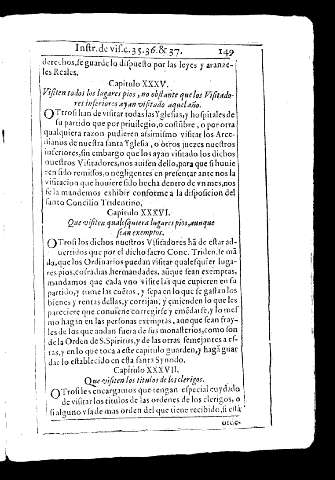 Instr. de vis. c. 35. 36. & 37. 149
derechos, se guarde lo dispuesto por las leyes y aranze-
les Reales.
Capitulo XXXV.
Visiten todos los lugares pios, no obstante que los Visitado-
res inferiores ayan visitado aquel año.
OTrosi han de visitar todas las Yglesias, y hospitales de
su partido que por priuilegio, o costūbre, o por otra
qualquiera razon pudieren assimismo visitar los Arce-
dianos de nuestra santa Yglesia, o otros juezes nuestros
inferiores, sin embargo que los ayan visitado los dichos
nuestros Visitadores, nos auisen dello, para que si huuie
ren sido remissos, o negligentes en presentar ante nos la
visitacion que huuieren sido hecha dentro de vn mes, nos
se la mandemos exhibir conforme a la disposicion del
santo Concilio Tridentino.
Capitulo XXXVI.
Que visiten qualesquiera lugares pios, aunque
sean exemptos.
OTrosi los dichos nuestros Visitadores hā de estar ad-
uertidos que por el dicho sacro Conc. Triden. se mā
da, que los Ordinarios puedan visitar qualesquier luga-
res pios, cofradias, hermandades, aūque sean exemptas,
mandamos que cada vno visite las que cupieren en su
partido, y tome las cuētas, y sepa en lo que se gastan los
bienes y rentas dellas, y corrijan, y emienden lo que les
pareciere que conuiene corregirse y emēdarse, y lo mes
mo hagan en las personas exemptas, aunque sean fray-
les de los que andan fuera de sus monasterios, como son
de la Orden de S. Spiritus, y de las otras semejantes a es-
tas, y en lo que toca a este capitulo guarden, y hagā guar
dar lo establecido en esta santa Synodo.
Capitulo XXXVII.
Que visiten los titulos de los clerigos.
OTrosi les encargamos que tengan especial cuydado
de visitar los titulos de las ordenes de los clerigos, o
si alguno vsa de mas orden del que tiene recibido, si està